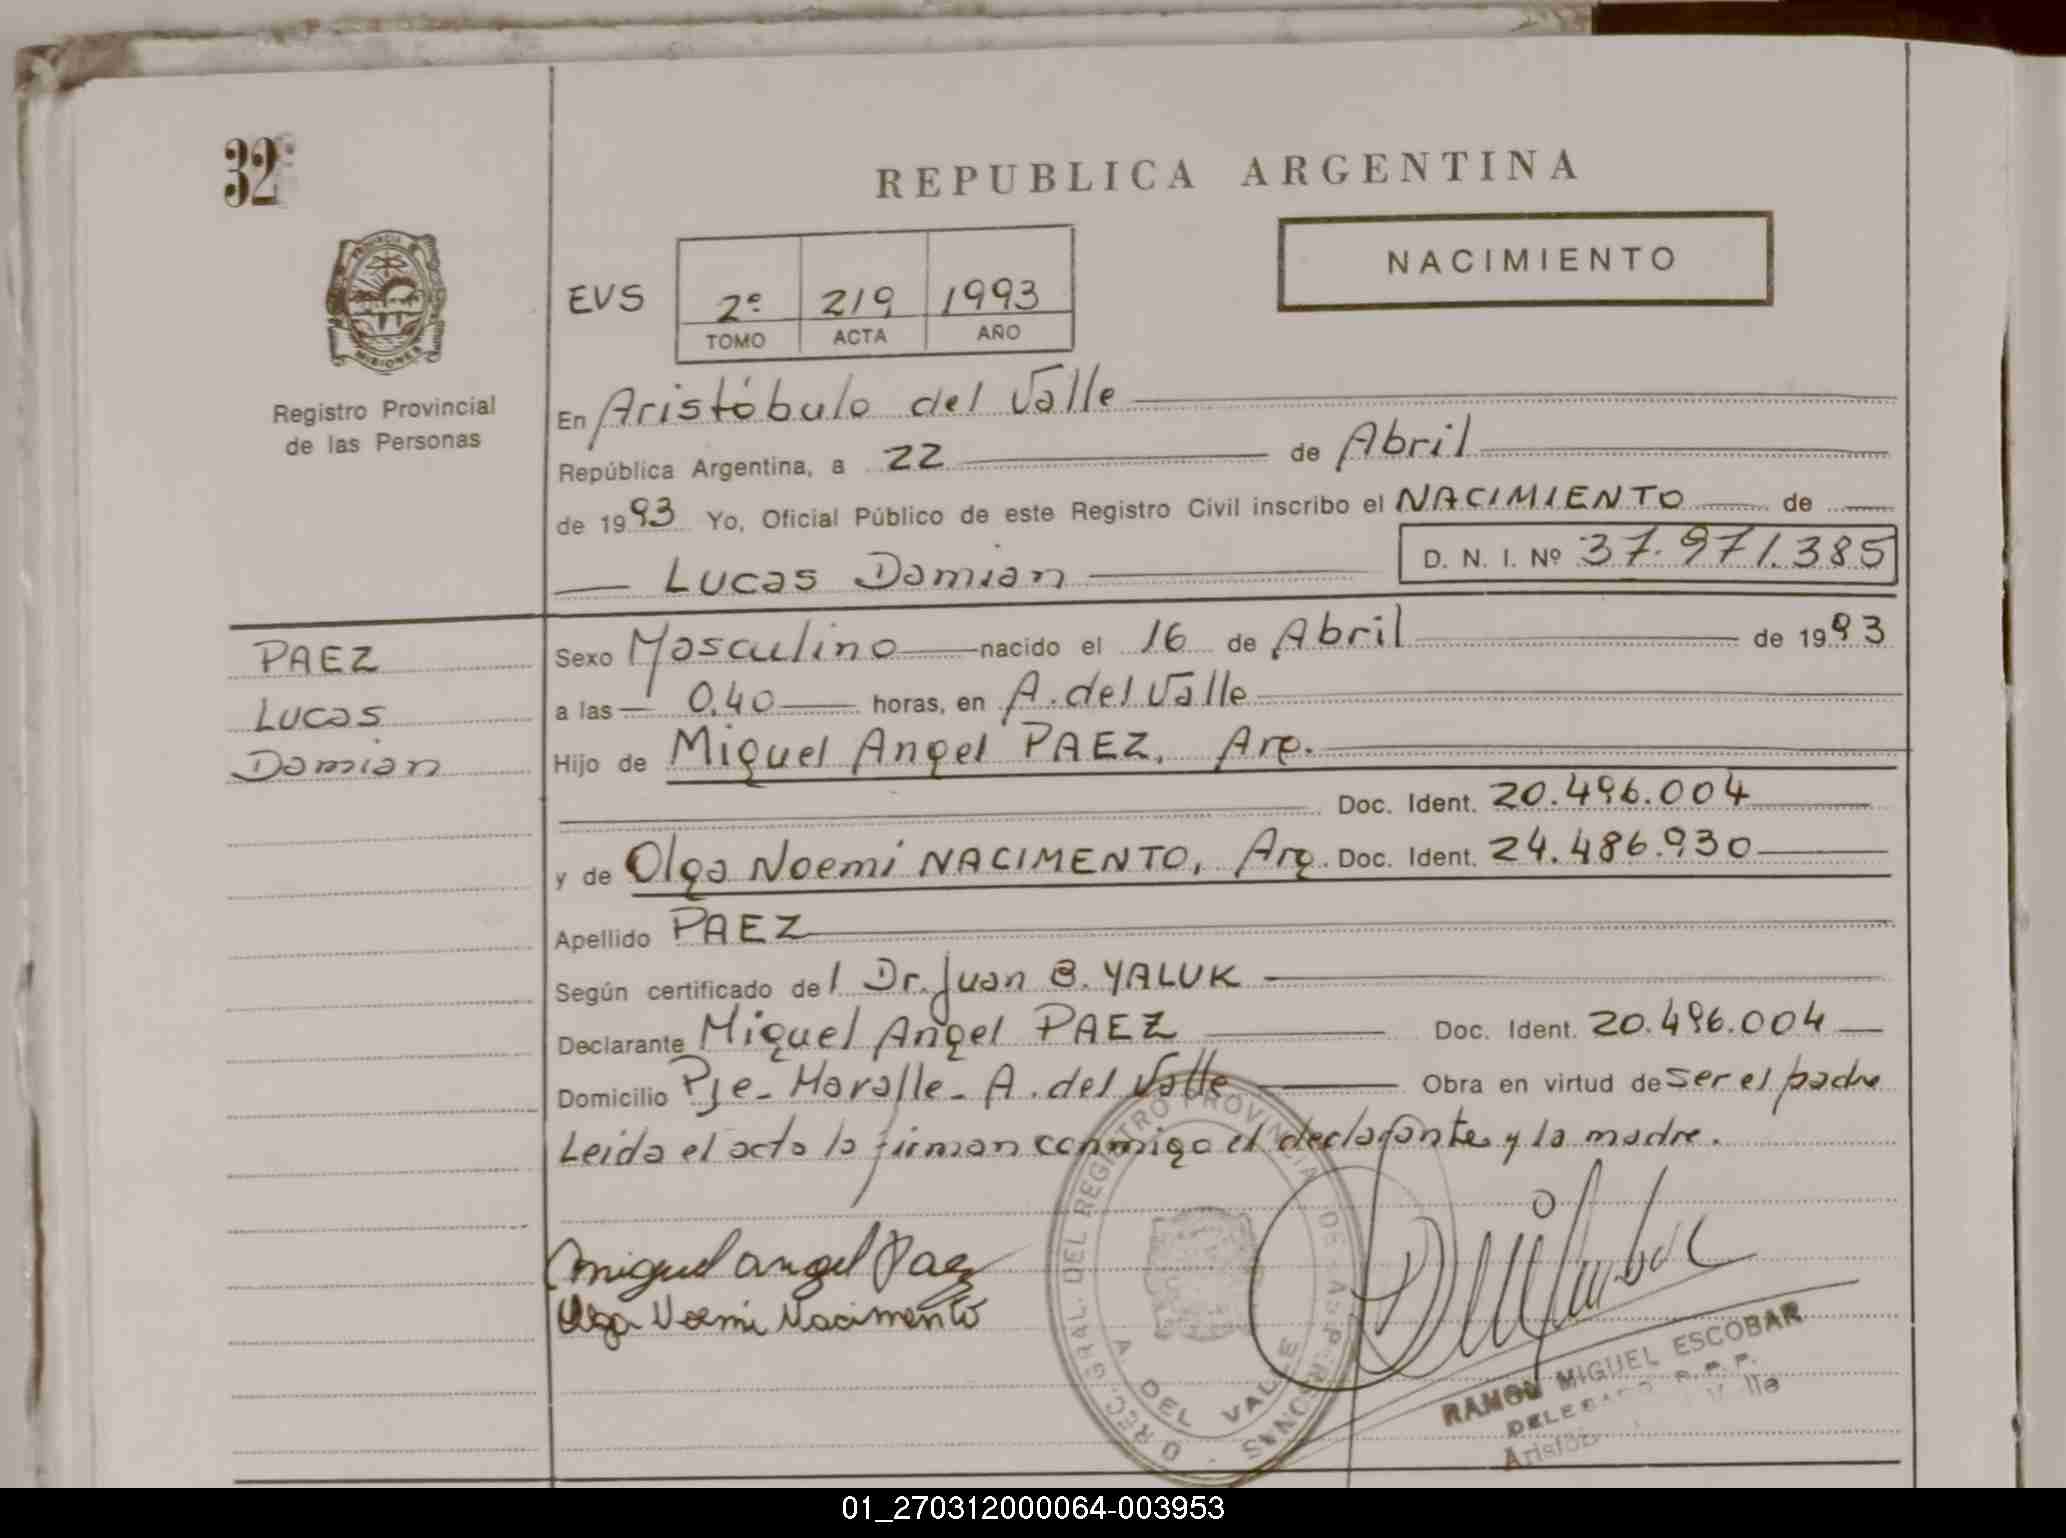 32
REPUBLICA ARGENTINA
NACIMIENTO
PROVINCIA DE
MISIONES
Registro Provincial
de las Personas
EVS 2º 219 1993
TOMO ACTA AÑO
En Aristóbulo del Valle
República Argentina, a 22 de Abril
de 1993 Yo, Oficial Público de este Registro Civil inscribo el NACIMIENTO de
Lucas Damian D. N. I. Nº 37.971.385
PAEZ
Lucas
Damian
Sexo Masculino nacido el 16 de Abril de 1993
a las 0.40 horas, en A. del Valle
Hijo de Miguel Angel PAEZ, Arg.
Doc. Ident. 20.496.004
y de Olga Noemi NACIMENTO, Arg. Doc. Ident. 24.486.930
Apellido PAEZ
Según certificado del Dr. Juan B. YALUK
Declarante Miguel Angel PAEZ Doc. Ident. 20.496.004
Domicilio Pje- Maralle- A. del Valle Obra en virtud de ser el padre
Leida el acta la firman conmigo el declarante y la madre.
Miguel angel Paez
Olga Noemi Nacimento
DIREC. GRAL. DEL REGISTRO PROVINCIAL DE LAS PERSONAS
A. DEL VALLE
RAMON MIGUEL ESCOBAR
DELEGADO R. P. P.
Aristób Valle
01_270312000064-003953